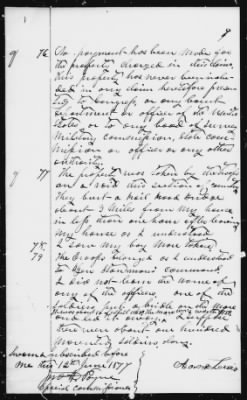 9
q 76 No payment has been made for
the property charged in this claim,
this property has never been included
in any claim heretofore presented
to congress, or any court
department or officer of the United
States or to any board of survey
Military commission, State commission
or officer or any other
authority
q 77 The property was taken by the troops
on a raid
They burnt a Rail Road bridge
about 3 miles from my house
in less than one hour after leaving
my house as I understood
78 I saw my boy mare taken
79 The troops belonged as I understood
to Gen command
I did not learn the name of
any of the officers one of the
soldiers put a bridle on the mare
and led it away
there were about one hundred
mounted soldiers along
Sworn & subscribed before
me this 12th June 1877
Special Commissioner